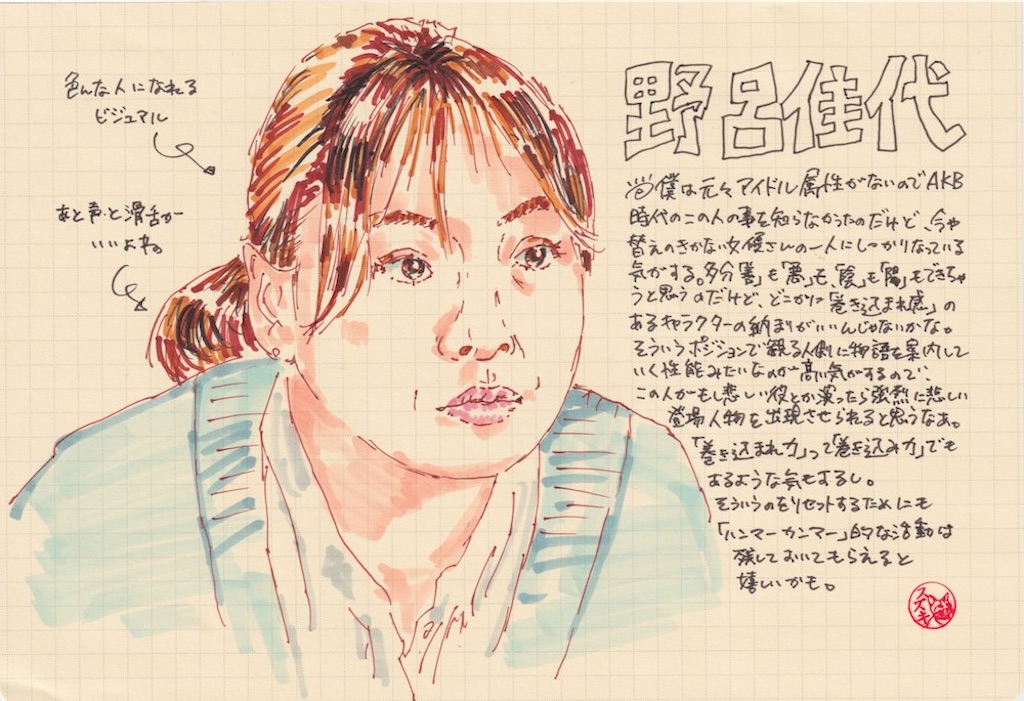 色んな人になれる
ビジュアル
あと声と滑舌が
いいよね。
野呂佳代
僕は元々アイドル属性がないのでAKB
時代のこの人の事を知らなかったのだけど、今や
替えのきかない女優さんの一人にしっかりなっている
気がする。多分「善」も「悪」も、「陰」も「陽」もできちゃ
うと思うのだけど、どこかに「巻き込まれ感」の
あるキャラクターの納まりがいいんじゃないかな。
そういうポジションで観る人側に物語を案内して
いく性能みたいなのが高い気がするので、
この人がもし悲しい役とか演ったら強烈に悲しい
登場人物を出現させられると思うなあ。
「巻き込まれ力」って「巻き込み力」でも
あるような気もするし。
そういうのをリセットするためにも
「ハンマーカンマー」的な活動は
残しておいてもらえると
嬉しいかも。
スズキ